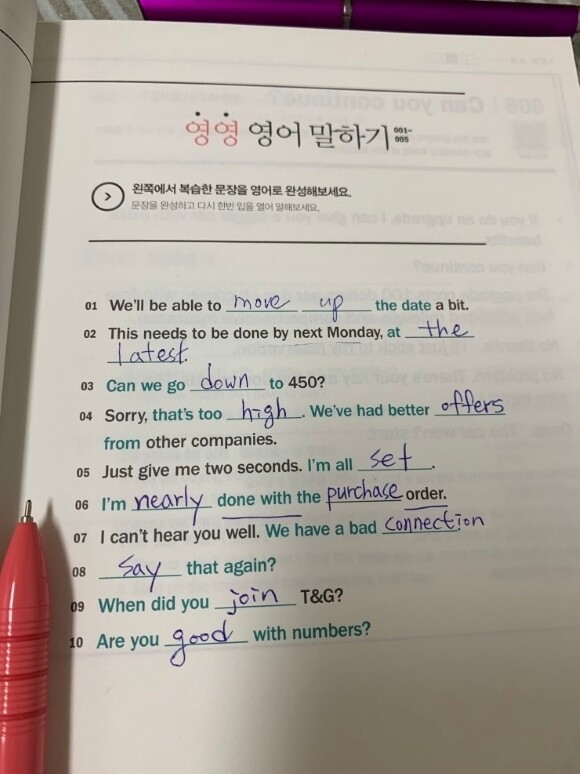 영영 영어 말하기 001-005
왼쪽에서 복습한 문장을 영어로 완성해보세요.
문장을 완성하고 다시 한번 입을 열어 말해보세요.
01 We'll be able to move up the date a bit.
02 This needs to be done by next Monday, at the
latest.
03 Can we go down to 450?
04 Sorry, that's too high. We've had better offers
from other companies.
05 Just give me two seconds. I'm all set.
06 I'm nearly done with the purchase order.
07 I can't hear you well. We have a bad connection
08 Say that again?
09 When did you join T&G?
10 Are you good with numbers?